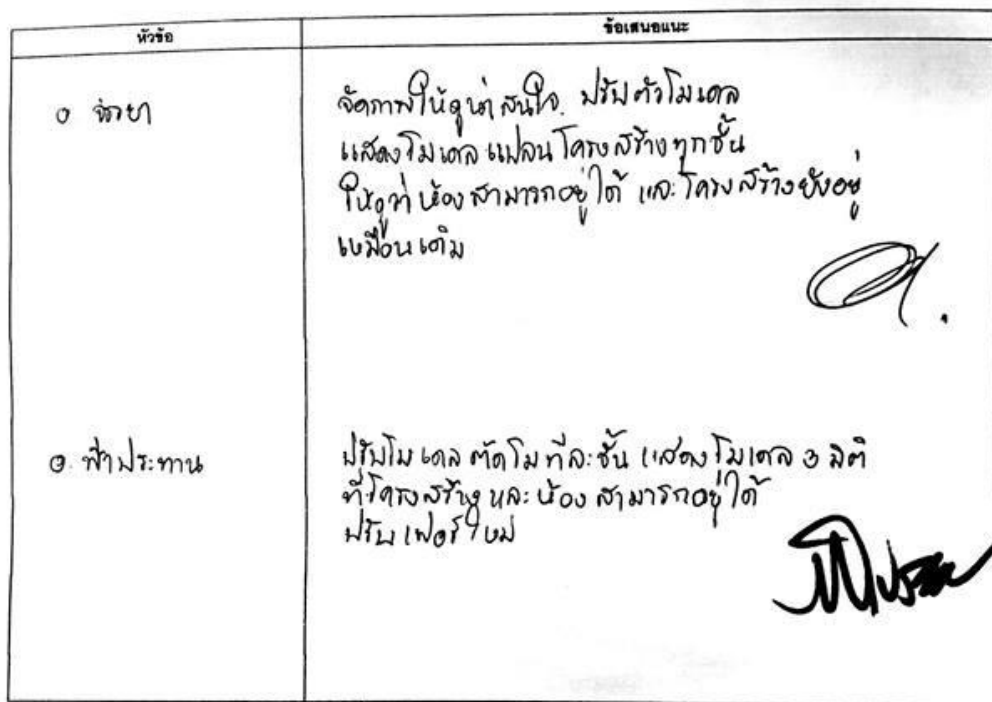 หัวข้อ
ข้อเสนอแนะ
๑ จรรยา
จัดภาพให้ดูน่าสนใจ. ปรับตัวโมเดล
แสดงโมเดล แปลน โครงสร้างทุกชั้น
ให้ดูว่าห้องสามารถอยู่ได้ และโครงสร้างยังอยู่
เหมือนเดิม
๒. ฟ้าประทาน
ปรับโมเดล ตัดโมทีละชั้น แสดงโมเดล ๓ มิติ
ที่โครงสร้าง และ ห้อง สามารถอยู่ได้
ปรับเฟอร์ใหม่